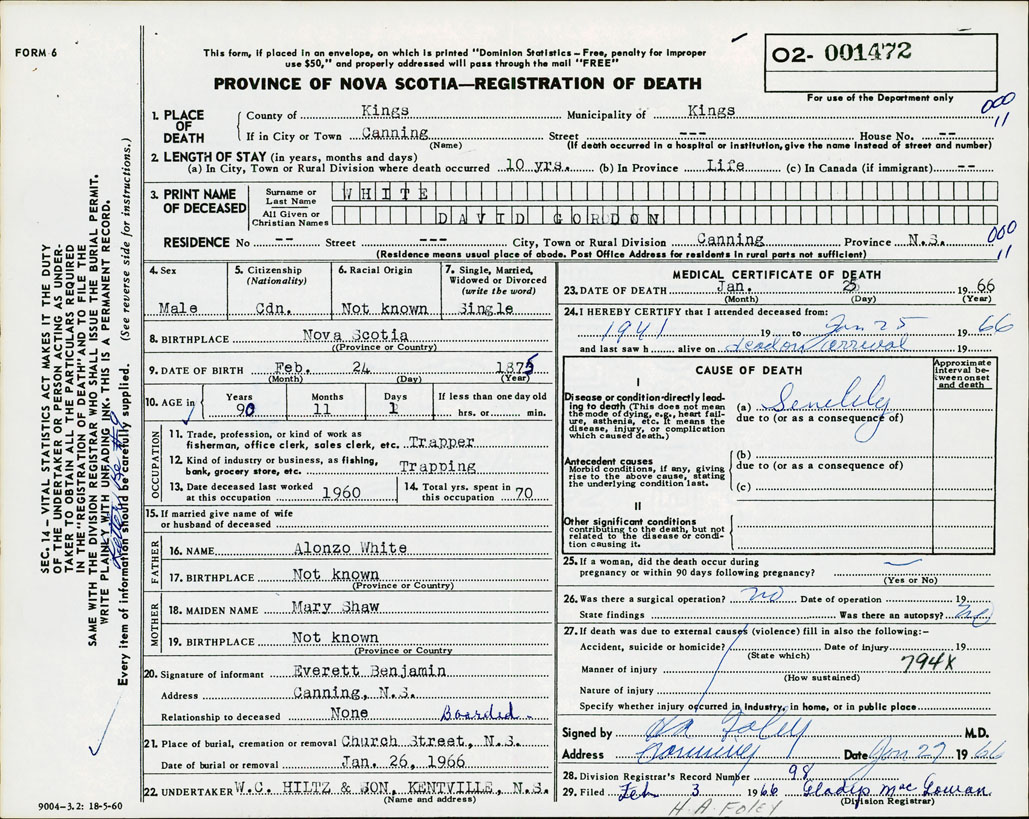 FORM 6
This form, if placed in an envelope, on which is printed "Dominion Statistics – Free, penalty for improper
use $50," and properly addressed will pass through the mail "FREE"
O2- 001472
For use of the Department only
PROVINCE OF NOVA SCOTIA—REGISTRATION OF DEATH
000
11
1. PLACE OF DEATH
County of Kings Municipality of Kings
If in City or Town Canning Street --- House No. --
(Name) (If death occurred in a hospital or institution, give the name instead of street and number)
2. LENGTH OF STAY (in years, months and days)
(a) In City, Town or Rural Division where death occurred 10 yrs. (b) In Province Life (c) In Canada (if immigrant) --
3. PRINT NAME OF DECEASED
Surname or Last Name WHITE
All Given or Christian Names DAVID GORDON
RESIDENCE No -- Street --- City, Town or Rural Division Canning Province N.S.
000
11
(Residence means usual place of abode. Post Office Address for residents in rural parts not sufficient)
4. Sex Male
5. Citizenship (Nationality) Cdn.
6. Racial Origin Not known
7. Single, Married, Widowed or Divorced (write the word) Single
8. BIRTHPLACE Nova Scotia
(Province or Country)
9. DATE OF BIRTH Feb. 24 1875
(Month) (Day) (Year)
10. AGE in Years Months Days If less than one day old
90 11 1 hrs. or min.
OCCUPATION
11. Trade, profession, or kind of work as
fisherman, office clerk, sales clerk, etc. Trapper
12. Kind of industry or business, as fishing,
bank, grocery store, etc. Trapping
13. Date deceased last worked
at this occupation 1960
14. Total yrs. spent in
this occupation 70
15. If married give name of wife
or husband of deceased
FATHER
16. NAME Alonzo White
17. BIRTHPLACE Not known
(Province or Country)
MOTHER
18. MAIDEN NAME Mary Shaw
19. BIRTHPLACE Not known
(Province or Country
20. Signature of informant Everett Benjamin
Address Canning, N.S.
Relationship to deceased None Boarded.
21. Place of burial, cremation or removal Church Street, N.S.
Date of burial or removal Jan. 26, 1966
22. UNDERTAKER W.C. HILTZ & SON, KENTVILLE, N.S.
(Name and address)
MEDICAL CERTIFICATE OF DEATH
23. DATE OF DEATH Jan. 25 1966
(Month) (Day) (Year)
24. I HEREBY CERTIFY that I attended deceased from:
1941 19 to Jan 25 1966
and last saw h alive on dead on arrival 19
CAUSE OF DEATH
Approximate interval between onset and death
I
Disease or condition-directly leading
to death (This does not mean
the mode of dying, e.g., heart failure,
asthenia, etc. It means the
disease, injury, or complication
which caused death.)
(a) Senility
due to (or as a consequence of)
Antecedent causes
Morbid conditions, if any, giving
rise to the above cause, stating
the underlying condition last.
(b)
due to (or as a consequence of)
(c)
II
Other significant conditions
contributing to the death, but not
related to the disease or condition
causing it.
25. If a woman, did the death occur during
pregnancy or within 90 days following pregnancy? —
(Yes or No)
26. Was there a surgical operation? no Date of operation 19
State findings Was there an autopsy? no
27. If death was due to external causes (violence) fill in also the following:–
Accident, suicide or homicide? Date of injury 19
(State which)
794X
Manner of injury
(How sustained)
Nature of injury
Specify whether injury occurred in Industry, in home, or in public place
Signed by HA Foley M.D.
Address Canning Date Jan 27 1966
28. Division Registrar's Record Number 98
29. Filed Feb 3 1966 Gladys MacGowan
(Division Registrar)
H.A. FOLEY
SEC. 14 – VITAL STATISTICS ACT MAKES IT THE DUTY
OF THE UNDERTAKER OR PERSON ACTING AS UNDERTAKER
TO OBTAIN ALL THE PARTICULARS REQUIRED
IN THE "REGISTRATION OF DEATH" AND TO FILE THE
SAME WITH THE DIVISION REGISTRAR WHO SHALL ISSUE THE BURIAL PERMIT.
WRITE PLAINLY WITH UNFADING INK. THIS IS A PERMANENT RECORD.
Every item of information should be carefully supplied. (See reverse side for instructions.)
9004–3.2: 18-5-60